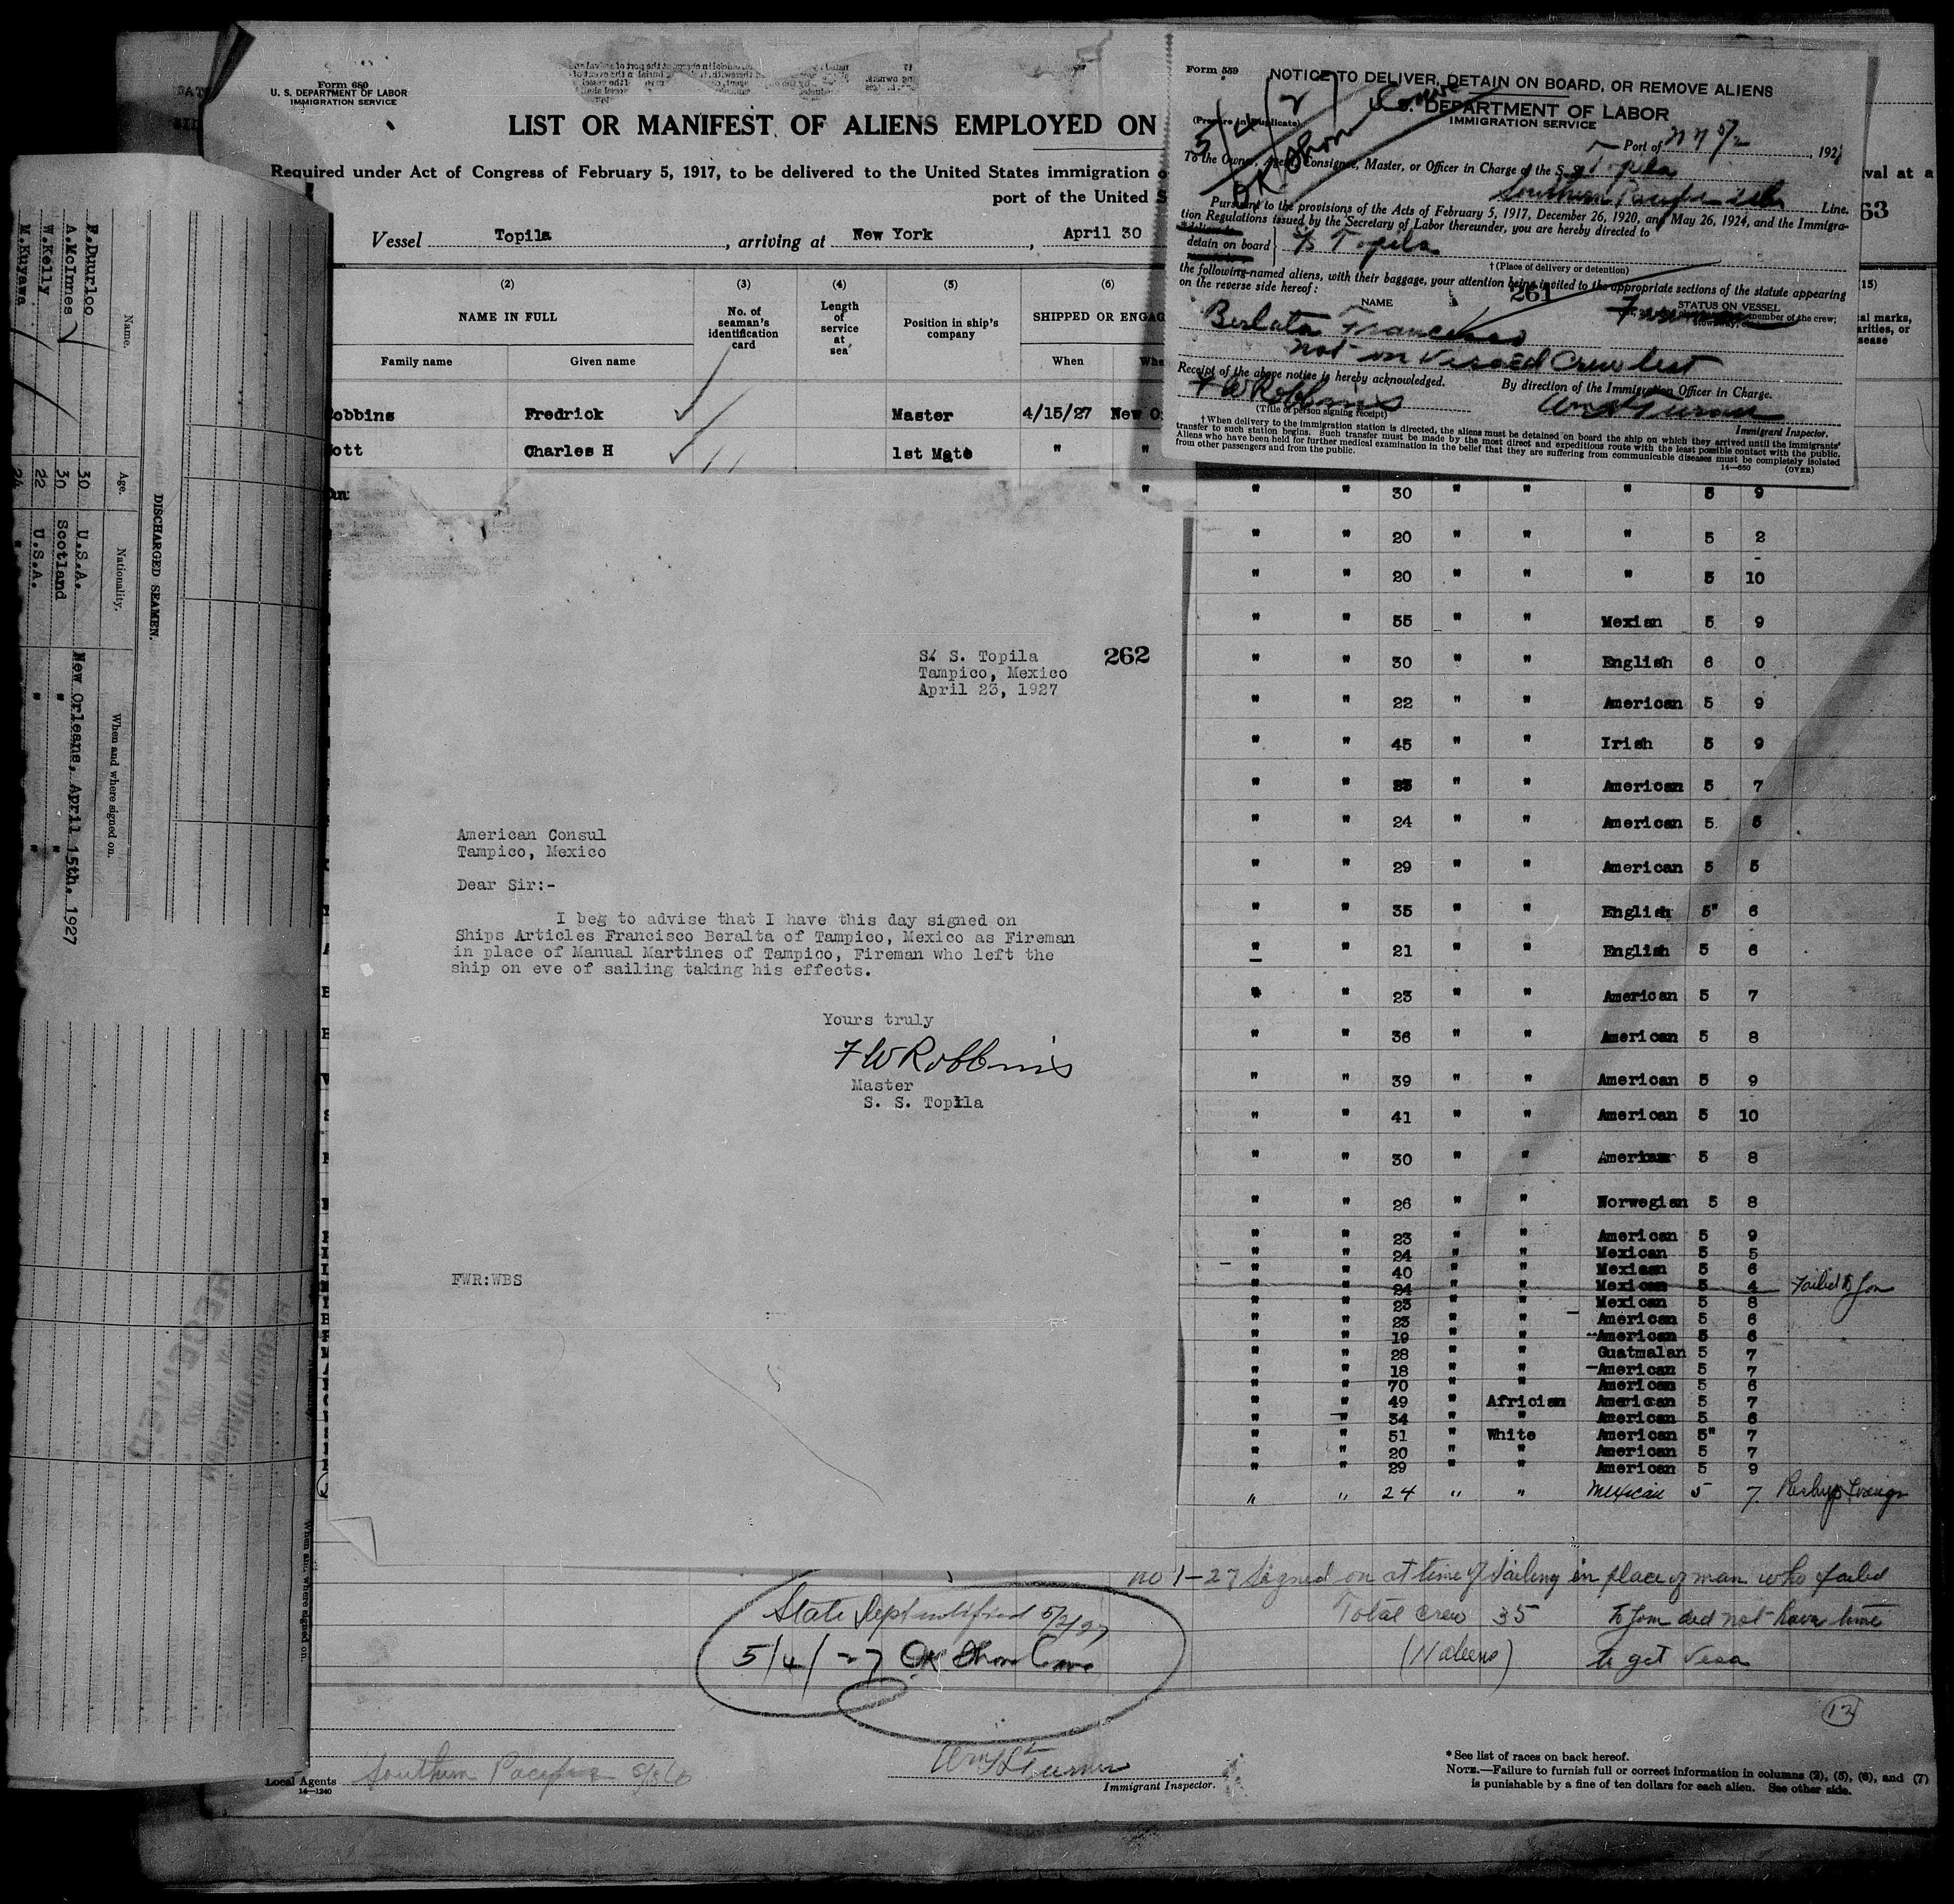 Form 680
U. S. DEPARTMENT OF LABOR
IMMIGRATION SERVICE
LIST OR MANIFEST OF ALIENS EMPLOYED ON
Required under Act of Congress of February 5, 1917, to be delivered to the United States immigration
port of the United
Vessel Topila, arriving at New York, April 30
(2) (3) (4) (5) (6)
NAME IN FULL
No. of seaman's identification card
Length of service at sea
Position in ship's company
SHIPPED OR ENGAG
Family name Given name When
obbins Fredrick Master 4/15/27 New O
ott Charles H 1st Mate " "
Form 559
NOTICE TO DELIVER, DETAIN ON BOARD, OR REMOVE ALIENS
U. S. DEPARTMENT OF LABOR
IMMIGRATION SERVICE
(Prepare in Duplicate)
Port of N Y 5/2, 192
To the Owner, Agent, Consignee, Master, or Officer in Charge of the S. S. Topila
Southern Pacific Line.
Pursuant to the provisions of the Acts of February 5, 1917, December 26, 1920, and May 26, 1924, and the Immigra-
tion Regulations issued by the Secretary of Labor thereunder, you are hereby directed to
detain on board S/S Topila
† (Place of delivery or detention)
the following-named aliens, with their baggage, your attention being invited to the appropriate sections of the statute appearing
on the reverse side hereof:
261
NAME STATUS ON VESSEL
member of the crew;
Berlata Francisco
not on Visaed Crew list
Receipt of the above notice is hereby acknowledged.
By direction of the Immigration Officer in Charge.
F W Robbins
Wm H Turner
(Title of person signing receipt)
Immigrant Inspector.
† When delivery to the immigration station is directed, the aliens must be detained on board the ship on which they arrived until the immigrants'
transfer to such station begins. Such transfer must be made by the most direct and expeditious route with the least possible contact with the public.
Aliens who have been held for further medical examination in the belief that they are suffering from communicable diseases must be completely isolated
from other passengers and from the public.
14—660 (OVER)
val at a
63
(15)
al marks,
arities, or
sease
S. S. Topila
Tampico, Mexico
April 23, 1927
262
American Consul
Tampico, Mexico
Dear Sir:-
I beg to advise that I have this day signed on
Ships Articles Francisco Beralta of Tampico, Mexico as Fireman
in place of Manual Martines of Tampico, Fireman who left the
ship on eve of sailing taking his effects.
Yours truly
F W Robbins
Master
S. S. Topila
FWR:WBS
" " 30 " " " 5 9
" " 20 " " " 5 2
" " 20 " " " 5 10
" " 55 " " Mexian 5 9
" " 30 " " English 6 0
" " 22 " " American 5 9
" " 45 " " Irish 5 9
" " " " American 5 7
" " 24 " " American 5 5
" " 29 " " American 5 5
" " 35 " " English 5" 6
" " 21 " " English 5 6
" " 23 " " American 5 7
" " 36 " " American 5 8
" " 39 " " American 5 9
" " 41 " " American 5 10
" " 30 " " American 5 8
" " 26 " " Norwegian 5 8
" " 23 " " American 5 9
" " 24 " " Mexican 5 5
" " 40 " " Mexican 5 6
" " 24 " " Mexican 5 4 Failed to Join
" " 23 " " Mexican 5 8
" " 23 " " American 5 6
" " 19 " " American 5 6
" " 28 " " Guatmalan 5 7
" " 18 " " American 5 7
" " 70 " " American 5 6
" " 49 " Africian American 5 7
" " 34 " " American 5 6
" " 51 " White American 5" 7
" " 20 " " American 5 7
" " 29 " " American 5 9
" " 24 " " Mexican 5 7
no 1-27 Signed on at time of Sailing in place of man who failed
Total crew 35 to Join did not have time
to get Visa
State Dept notified 5/2/27
5/4/27 OK Shore Leave
12
Southern Pacific
Local Agents
14—1240
Wm H Turner
Immigrant Inspector.
* See list of races on back hereof.
NOTE.—Failure to furnish full or correct information in columns (2), (5), (6), and (7)
is punishable by a fine of ten dollars for each alien. See other side.
DISCHARGED SEAMEN.
Name. Age. Nationality. When and where signed on.
F.Duurloo 30 U.S.A. New Orleans, April 15th. 1927
A.McInnes 30 Scotland " "
W.Kelly 22 U.S.A. " "
M.Kuyawa 24 "
When and where signed on.